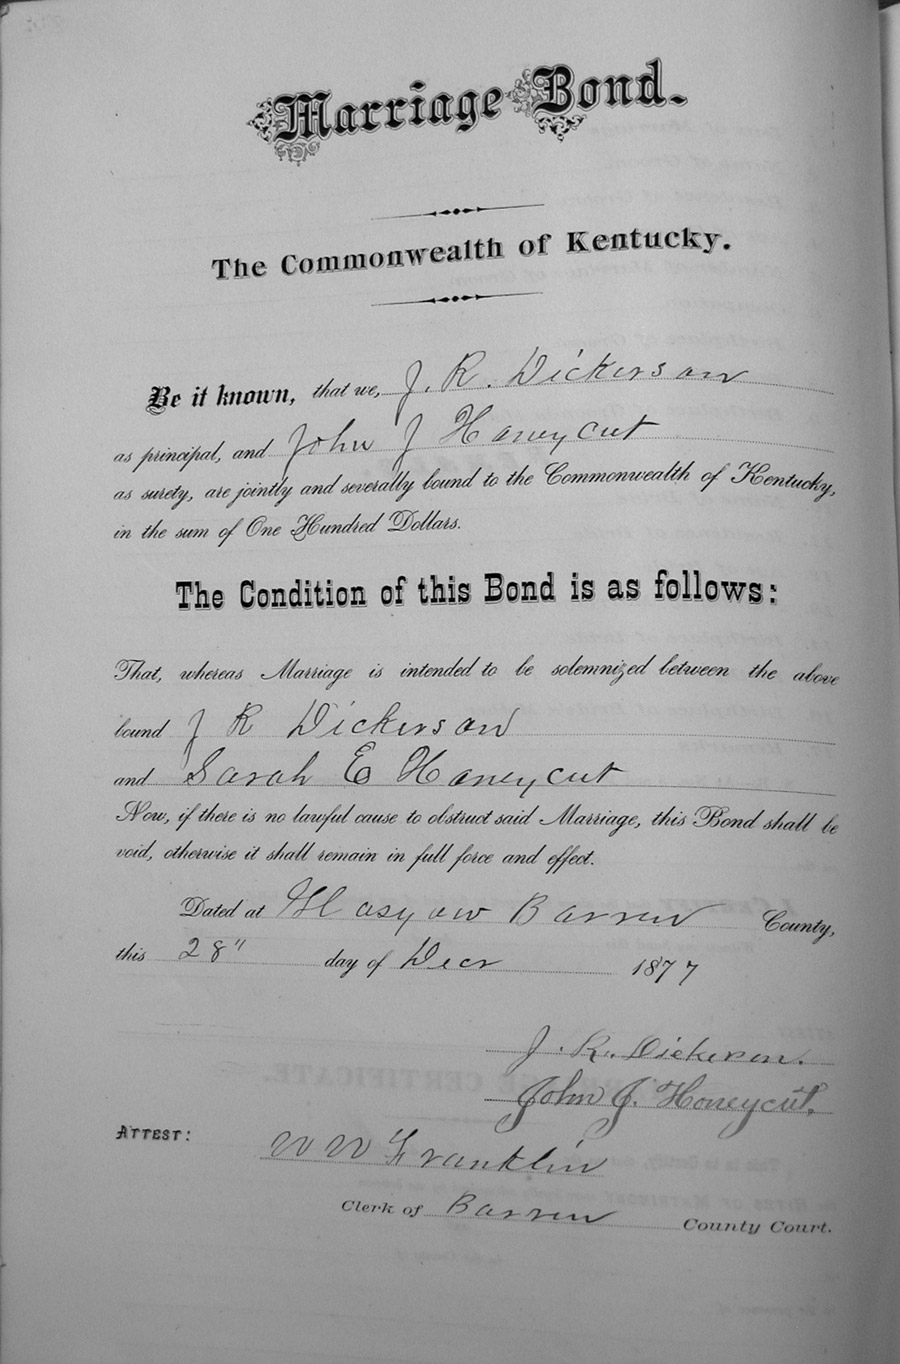 Marriage Bond.
The Commonwealth of Kentucky.
Be it known, that we, J. R. Dickerson
as principal, and John J Honeycut
as surety, are jointly and severally bound to the Commonwealth of Kentucky,
in the sum of One Hundred Dollars.
The Condition of this Bond is as follows:
That, whereas Marriage is intended to be solemnized between the above
bound J R Dickerson
and Sarah E Honeycut
Now, if there is no lawful cause to obstruct said Marriage, this Bond shall be
void, otherwise it shall remain in full force and effect.
Dated at Glasgow Barren County,
this 28" day of Decr 1877
J. R. Dickerson.
John J. Honeycut.
ATTEST: W W Franklin
Clerk of Barren County Court.